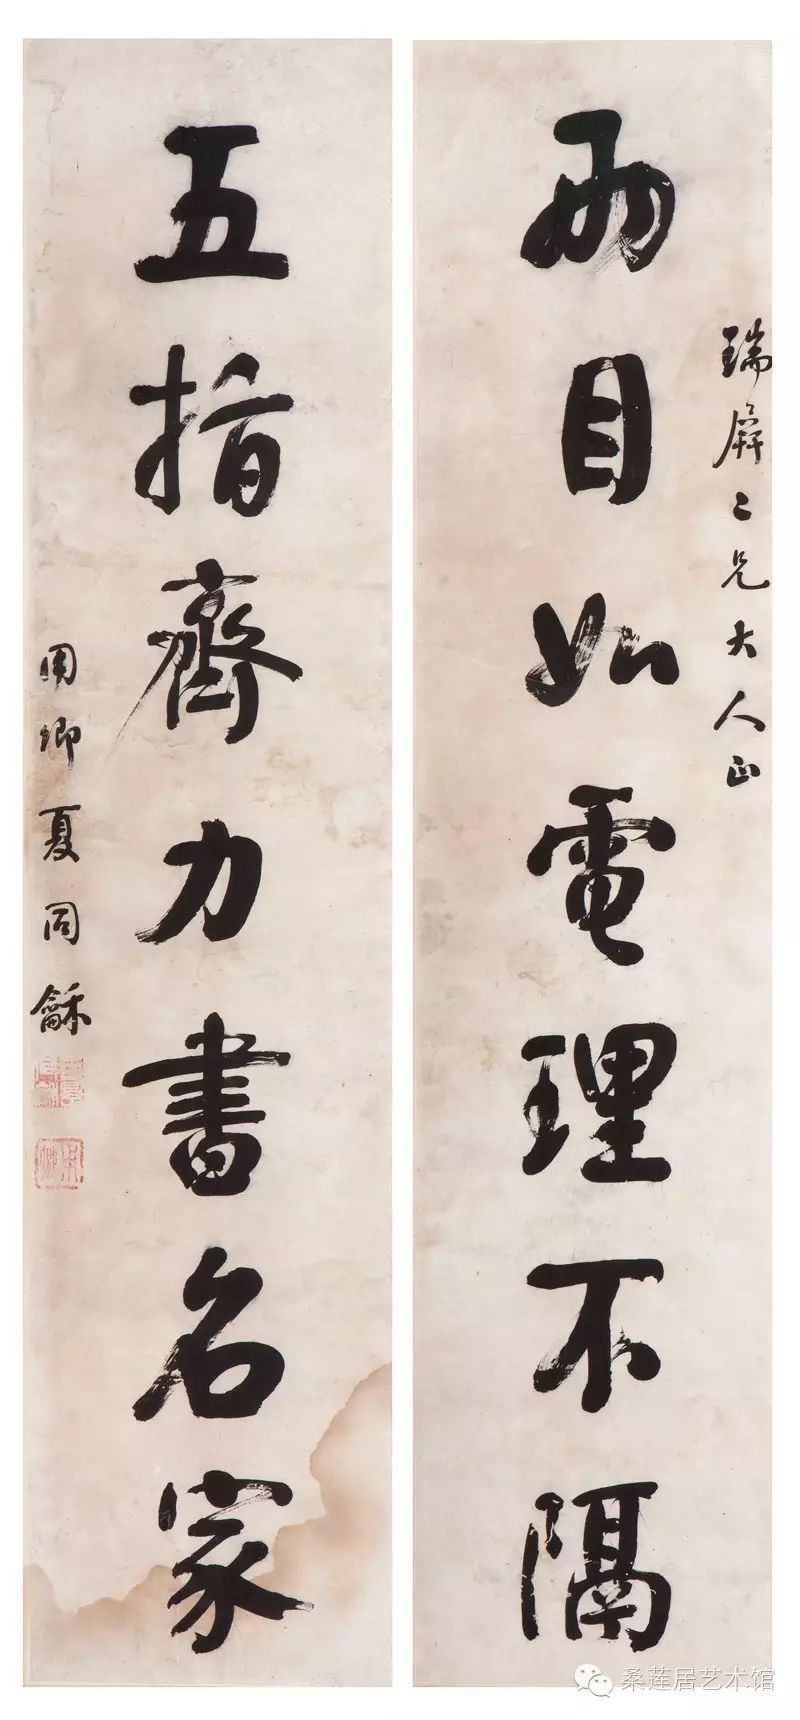 瑞屏二兄大人正
两目如電理不隔
五指齊力書名家
用卿夏同龢
桑莲居艺术馆